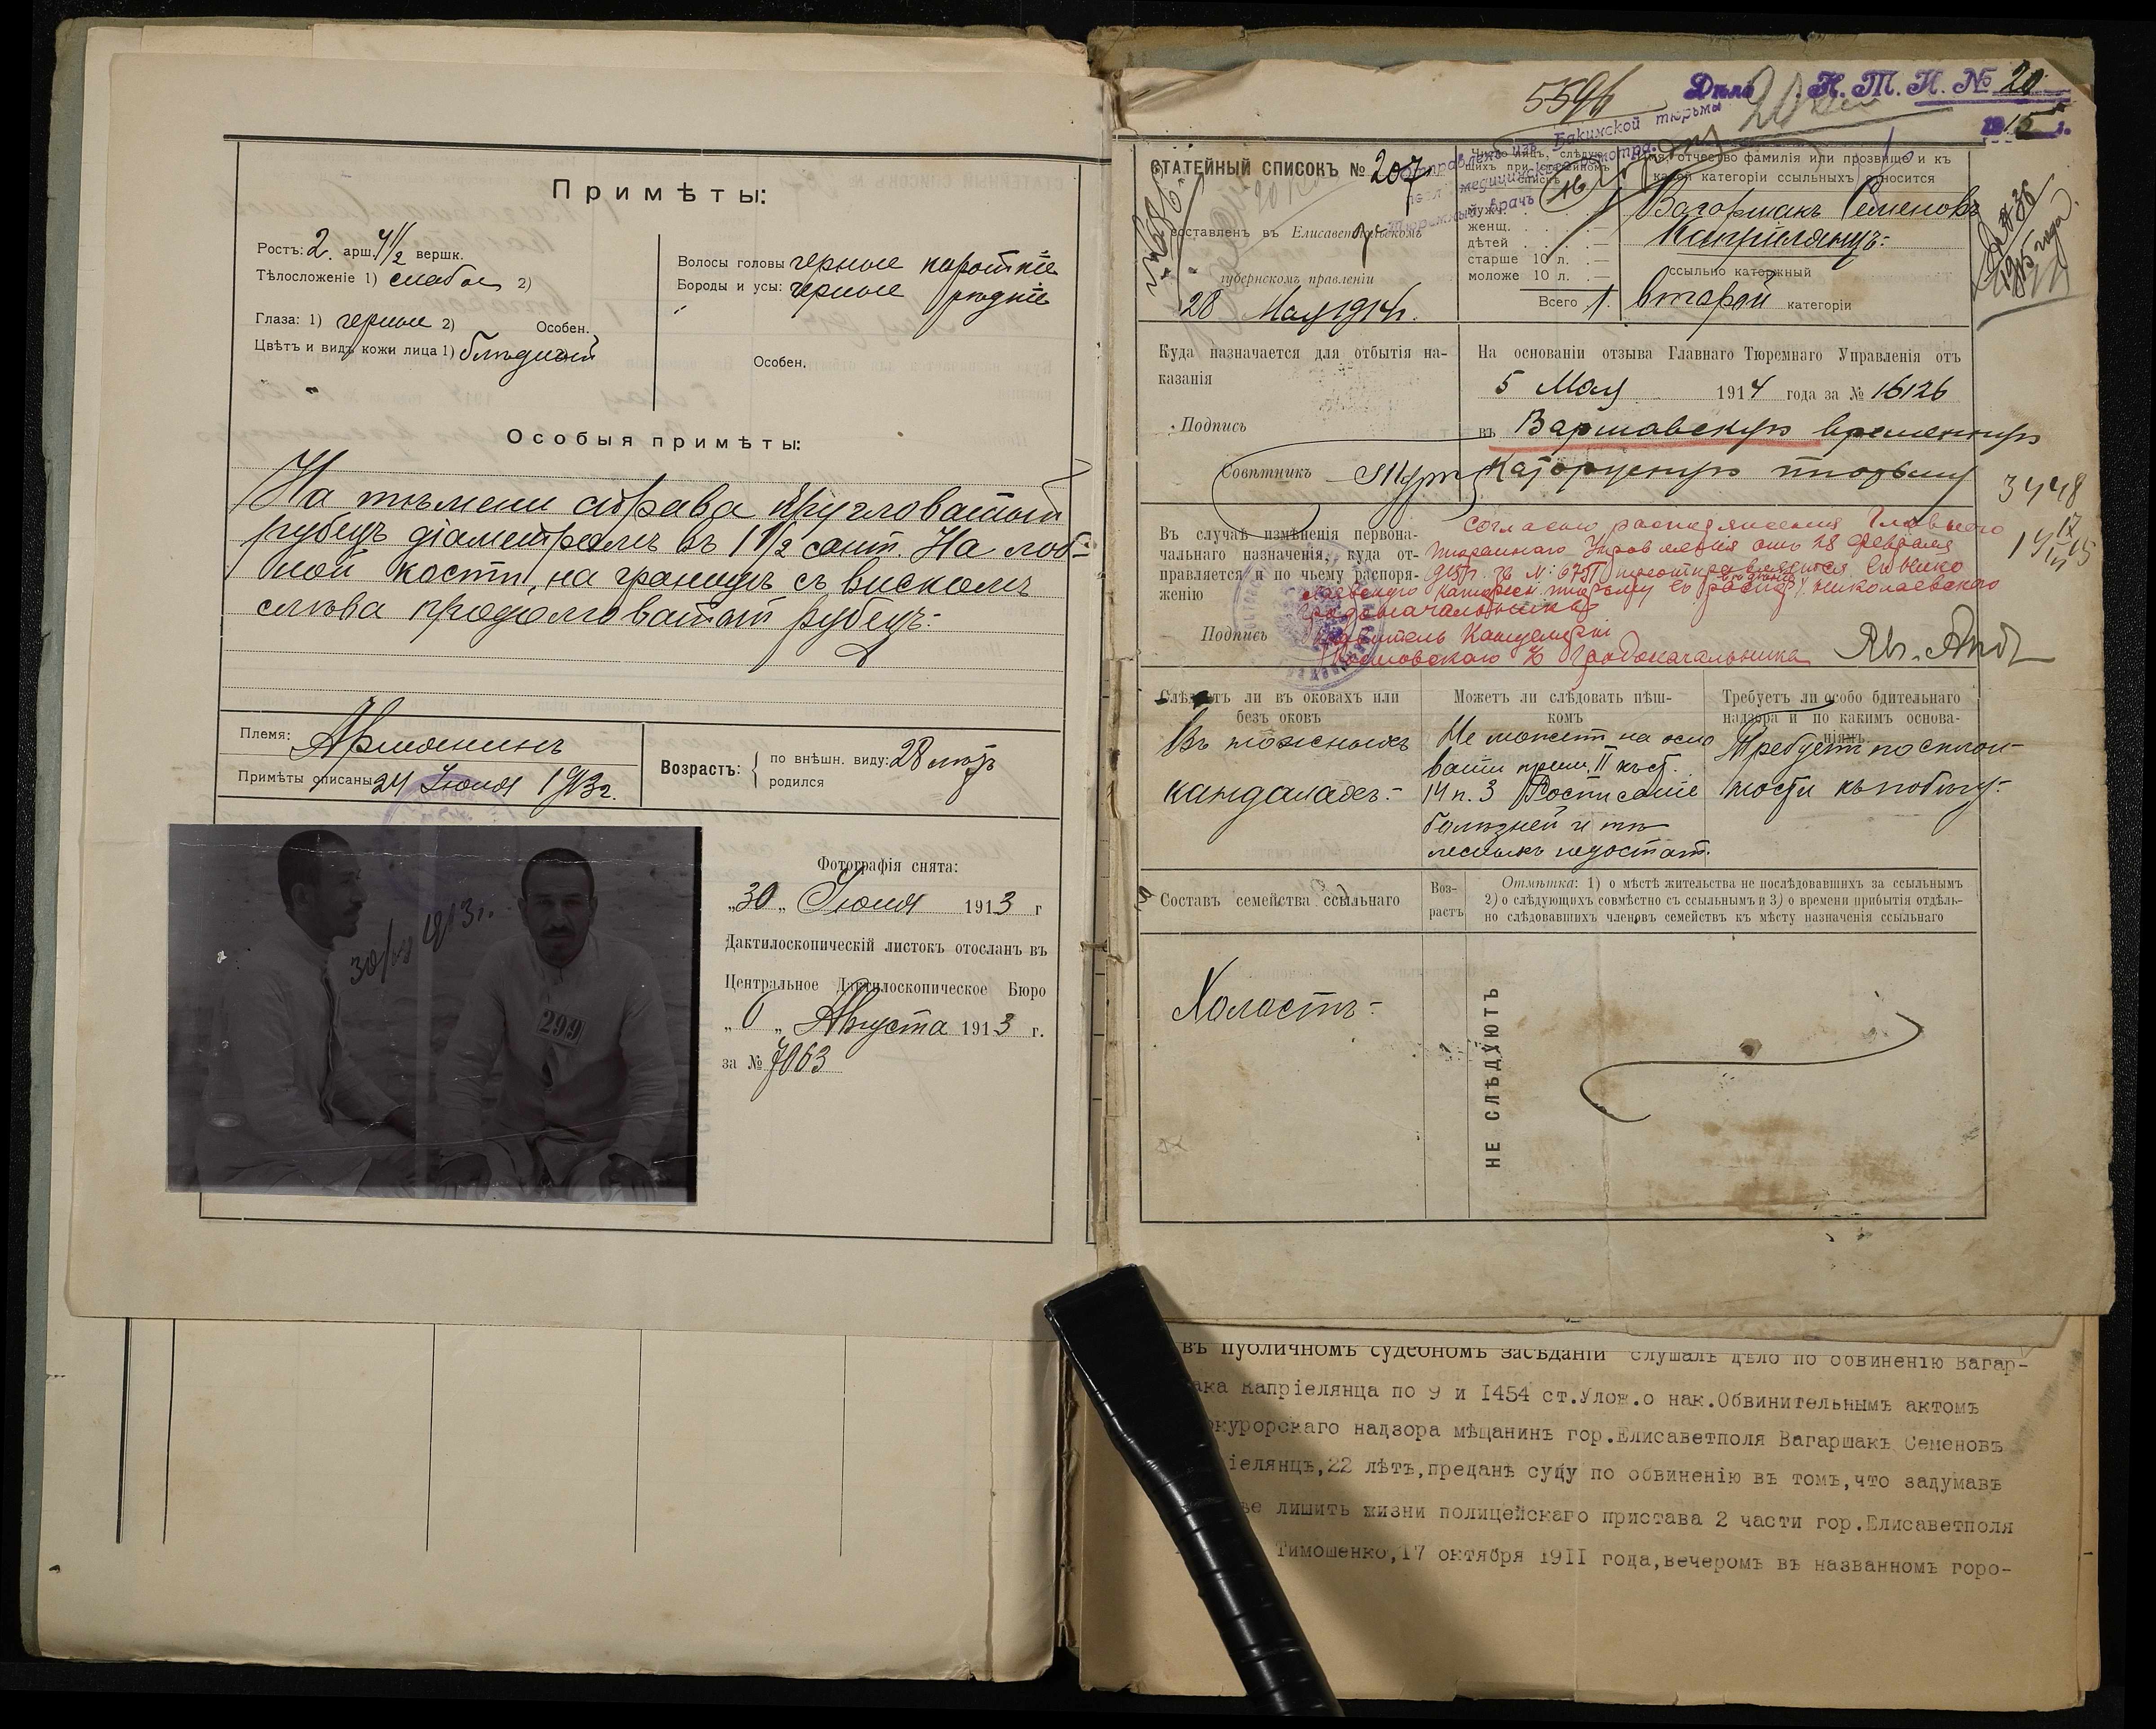 Примѣты:
Ростъ: 2 арш. 4 1/2 вершк.
Тѣлосложеніе 1) слабое 2)
Глаза: 1) черные 2) Особен.
Цвѣтъ и видъ кожи лица 1) блѣдный
Волосы головы черные короткіе
Бороды и усы: черные рѣдкіе
Особен.
Особыя примѣты:
На тѣмени справа кругловатый
рубецъ діаметромъ въ 1 1/2 сант. На лоб-
ной кости, на границѣ съ вискомъ
слѣва продолговатый рубецъ.
Племя: Армянинъ
Примѣты описаны 24 Іюня 1913 г.
Возрастъ: по внѣшн. виду: 28 лѣтъ
родился
30/VI 1913 г.
299
Фотографія снята:
„30„ Іюня 1913 г
Дактилоскопическій листокъ отосланъ въ
Центральное Дактилоскопическое Бюро
„6„ Августа 1913 г.
за № 7063
5596
Дѣло Н. Т. И. № 20
1915 г.
Отправленъ изъ Бакинской тюрьмы
послѣ медицинскаго осмотра.
Тюремный врачъ
СТАТЕЙНЫЙ СПИСОКЪ № 207
составленъ въ Елисаветпольскомъ
губернскомъ правленіи
28 Мая 1914 г.
Число лицъ, слѣдую-
щихъ при статейномъ
спискѣ
мужч.
женщ.
дѣтей
старше 10 л.
моложе 10 л.
Всего 1.
Имя, отчество фамилія или прозвище и къ
какой категоріи ссыльныхъ относится
Вагаршакъ Семеновъ
Капріелянцъ:
ссыльно каторжный
второй категоріи
Куда назначается для отбытія на-
казанія
Подпись
Совѣтникъ
На основаніи отзыва Главнаго Тюремнаго Управленія отъ
5 Мая 1914 года за № 16126
въ Варшавскую временную
каторжную тюрьму
3448
Въ случаѣ измѣненія первона-
чальнаго назначенія, куда от-
правляется и по чьему распоря-
женію
Подпись
Согласно распоряженія Главнаго
Тюремнаго Управленія отъ 28 февраля
Николаевскаго
Градоначальника
Правитель Канцеляріи
Градоначальника
Слѣдуетъ ли въ оковахъ или
безъ оковъ
Въ ножныхъ
кандалахъ:
Можетъ ли слѣдовать пѣш-
комъ
Не можетъ на осно
ваніи прим. II къ ст.
14 п. 3 Росписаніе
болѣзней и тѣ
лесныхъ недостат.
Требуетъ ли особо бдительнаго
надзора и по какимъ основа-
ніямъ.
Требуетъ по склон-
ности къ побѣгу.
Составъ семейства ссыльнаго
Воз-
растъ
Отмѣтка: 1) о мѣстѣ жительства не послѣдовавшихъ за ссыльнымъ
2) о слѣдующихъ совмѣстно съ ссыльнымъ и 3) о времени прибытія отдѣль-
но слѣдовавшихъ членовъ семействъ къ мѣсту назначенія ссыльнаго
Холостъ
НЕ СЛѢДУЮТЪ
въ публичномъ судебномъ засѣданіи слушалъ дѣло по обвиненію Вагар-
ака Капріелянца по 9 и 1454 ст.Улож.о нак.Обвинительнымъ актомъ
окурорскаго надзора мѣщанинъ гор.Елисаветполя Вагаршакъ Семеновъ
іелянцъ,22 лѣтъ,преданъ суду по обвиненію въ томъ,что задумавъ
ье лишить жизни полицейскаго пристава 2 части гор.Елисаветполя
Тимошенко,17 октября 1911 года,вечеромъ въ названномъ горо-